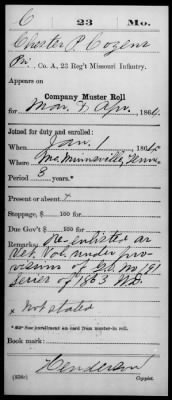 C 23 Mo.
Chester P. Cozens
Pri., Co. A, 23 Reg't Missouri Infantry.
Appears on
Company Muster Roll
for Mar. & Apr., 1864.
Joined for duty and enrolled:
When Jan. 1, 186
Where Mc Minnville, Tenn.
Period 3 years.*
Present or absent x
Stoppage, $ 100 for
Due Gov't $ 100 for
Remarks: Re-enlisted as
Vet. Vol. under pro-
visions of G.O. No 191
Series of 1863 W.D.
x Not stated
*See enrollment on card from muster-in roll.
Book mark:
Henderson
(358c) Copyist.